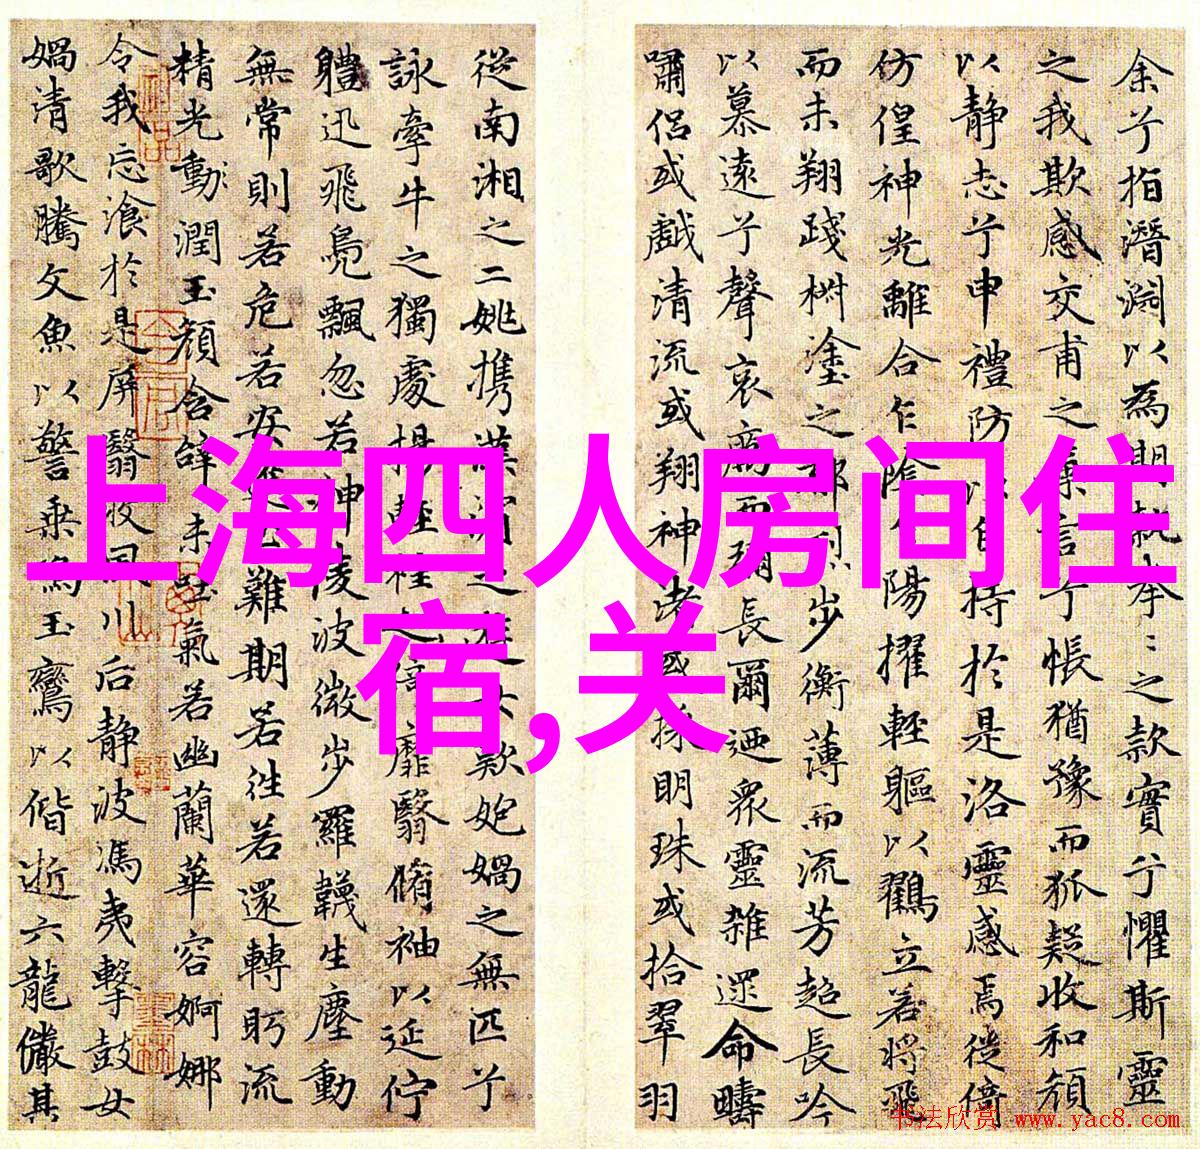 上海四人房间住
宿,关
余兮指潛淵以為期執拳〻之款實兮懼斯靈
之我欺感交甫之棄言兮悵猶豫而狐疑收和顏
以靜志兮申禮防以自持於是洛靈感焉徙倚
仿偟神光離合乍陰乍陽擢輕軀以鶴立若將飛
而未翔踐椒塗之郁烈步衡薄而流芳超長吟
以慕遠兮聲哀厲而彌長爾迺衆靈雜遝命疇
嘯侶或戲清流或翔神渚或採明珠或拾翠羽
從南湘之二姚攜漢濱之女歎匏媧之無匹兮
詠牽牛之獨處揚輕袿之猗靡翳脩袖以延佇
體迅飛鳧飄忽若神陵波微步羅韈生塵動
無常則若危若安難期若往若還轉眄流
精光動潤玉顏含辭未吐氣若幽蘭華容婀娜
令我忘飡於是屏翳收風川后靜波馮夷擊鼓女
媧清歌騰文魚以警乘鳴玉鸞以偕逝六龍儼其
书法欣赏 www.yac8.com